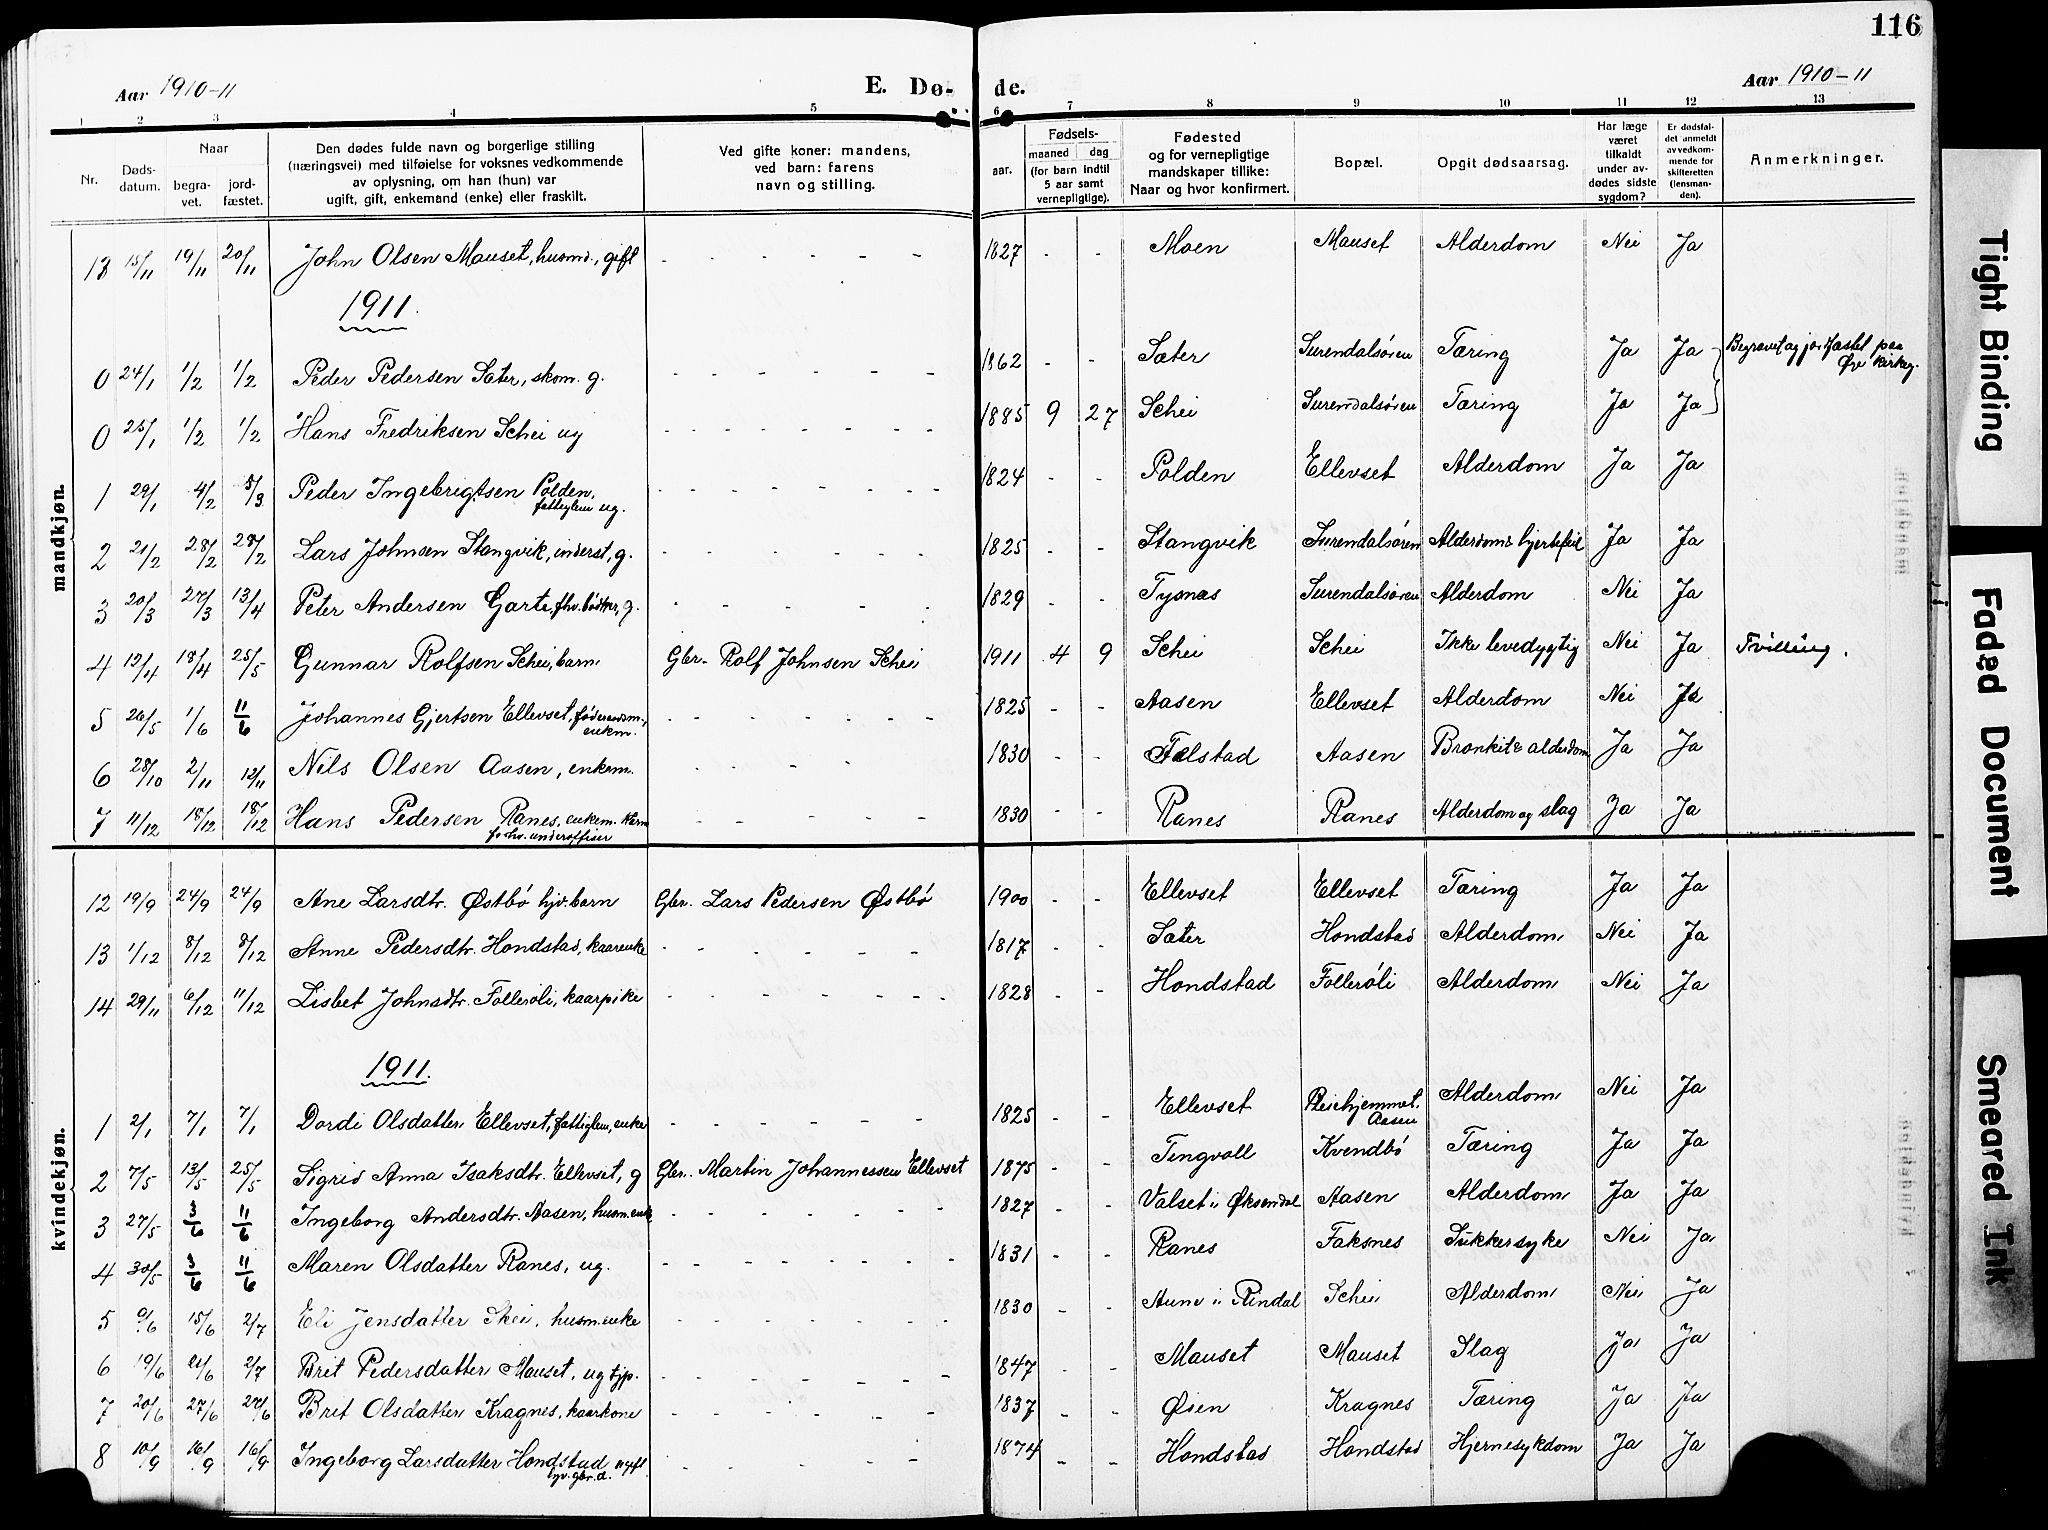 116
Aar 1910-11 E. Dø- de. Aar 1910-11
1 2 3 4 5 6 7 8 9 10 11 12 13
Nr. Dødsdatum. Naar begravet. jordfæstet. Den dødes fulde navn og borgerlige stilling (næringsvei) med tilføielse for voksnes vedkommende av oplysning, om han (hun) var ugift, gift, enkemand (enke) eller fraskilt. Ved gifte koner: mandens, ved barn: farens navn og stilling. aar. Fødsels- maaned dag (for barn indtil 5 aar samt vernepligtige). Fødested og for vernepligtige mandskaper tillike: Naar og hvor konfirmert. Bopæl. Opgit dødsaarsag. Har læge været tilkaldt under avdødes sidste sygdom? Er dødsfaldet anmeldt av vedkommende for skifteretten (lensmanden). Anmerkninger.
mandkjøn.
13 15/11 19/11 20/11 John Olsen Mauset, husmd., gift - - - - - - 1827 - - Moen Mauset Alderdom Nei Ja
1911.
0 24/1 1/2 1/2 Peder Pedersen Sæter, skom. g. - - - - - - 1862 - - Sæter Surendalsøren Tæring Ja Ja Begravet og jordfæstet paa Øve kirkeg.
0 25/1 1/2 1/2 Hans Fredriksen Schei ug - - - - - - - 1885 9 27 Schei Surendalsøren Tæring Ja Ja
1 29/1 4/2 5/3 Peder Ingebrigtsen Polden, fattiglem ug. - - - - - - - 1824 - - Polden Ellevset Alderdom Ja Ja
2 21/2 28/2 28/2 Lars Johnsen Stangvik, inderst, g. - - - - - - 1825 - - Stangvik Surendalsøren Alderdom & hjertefeil Ja Ja
3 20/3 27/3 13/4 Peter Andersen Garte, fhv. bødker, g. - - - - - - 1829 - - Tysnæs Surendalsøren Alderdom Nei Ja
4 12/4 18/4 25/5 Gunnar Rolfsen Schei, barn Gbr. Rolf Johnsen Schei 1911 4 9 Schei Schei Ikke levedygtig Nei Ja Tvilling.
5 26/5 1/6 11/6 Johannes Gjertsen Ellevset, føderaadsm., enkem. - - - - - - 1825 - - Aasen Ellevset Alderdom Nei Ja
6 28/10 2/11 12/11 Nils Olsen Aasen, enkem. - - - - 1830 - - Følstad Aasen Bronkit & alderdom Ja Ja
7 11/12 18/12 18/12 Hans Pedersen Ranes, enkem. Karm forhv. underofficer - - - - - - 1830 - - Ranes Ranes Alderdom og slag Ja Ja
kvindekjøn.
12 19/9 24/9 24/9 Ane Larsdtr. Østbø hjv. barn Gbr. Lars Pedersen Østbø 1900 - - Ellevset Ellevset Tæring Ja Ja
13 1/12 8/12 8/12 Anne Pedersdtr. Hondstad, kaarenke - - - - - - 1817 - - Sæter Hondstad Alderdom Nei Ja
14 29/11 6/12 11/12 Lisbet Johnsdtr. Follerøli, kaarpike - - - - - - - 1828 - - Hondstad Follerøli Alderdom Nei Ja
1911.
1 2/1 7/1 7/1 Dordi Olsdatter Ellevset, fattiglem, enke - - - - - - 1825 - - Ellevset Pleiehjemmet, Aasen Alderdom Nei Ja
2 7/5 13/5 25/5 Sigrid Anna Isaksdtr. Ellevset, g Gbr. Martin Johannessen Ellevset 1875 - - Tingvoll Kvendbø Tæring Ja Ja
3 27/5 3/6 11/6 Ingeborg Andersdtr. Aasen, husm.enke - - - - - - - 1827 - - Valset i Øksendal Aasen Alderdom Ja Ja
4 30/5 3/6 11/6 Maren Olsdatter Ranes, ug. - - - - - - - 1831 - - Ranes Faksnes Sukkersyke Nei Ja
5 9/6 15/6 2/7 Eli Jensdatter Skei, husm.enke - - - - - - - 1830 - - Aune i Rindal Schei Alderdom Nei Ja
6 19/6 24/6 2/7 Brit Pedersdatter Mauset, ug tjp. - - - - - - - 1847 - - Mauset Mauset Slag Ja Ja
7 20/6 27/6 27/6 Brit Olsdatter Kragnes, kaarkone - - - - - - 1837 - - Øien Kragnes Tæring Ja Ja
8 10/9 16/9 16/9 Ingeborg Larsdatter Hondstad ugift hjv. gbr. d. - - - - - - 1874 - - Hondstad Hondstad Hjernesykdom Ja Ja
Tight Binding
Faded Document
Smeared Ink